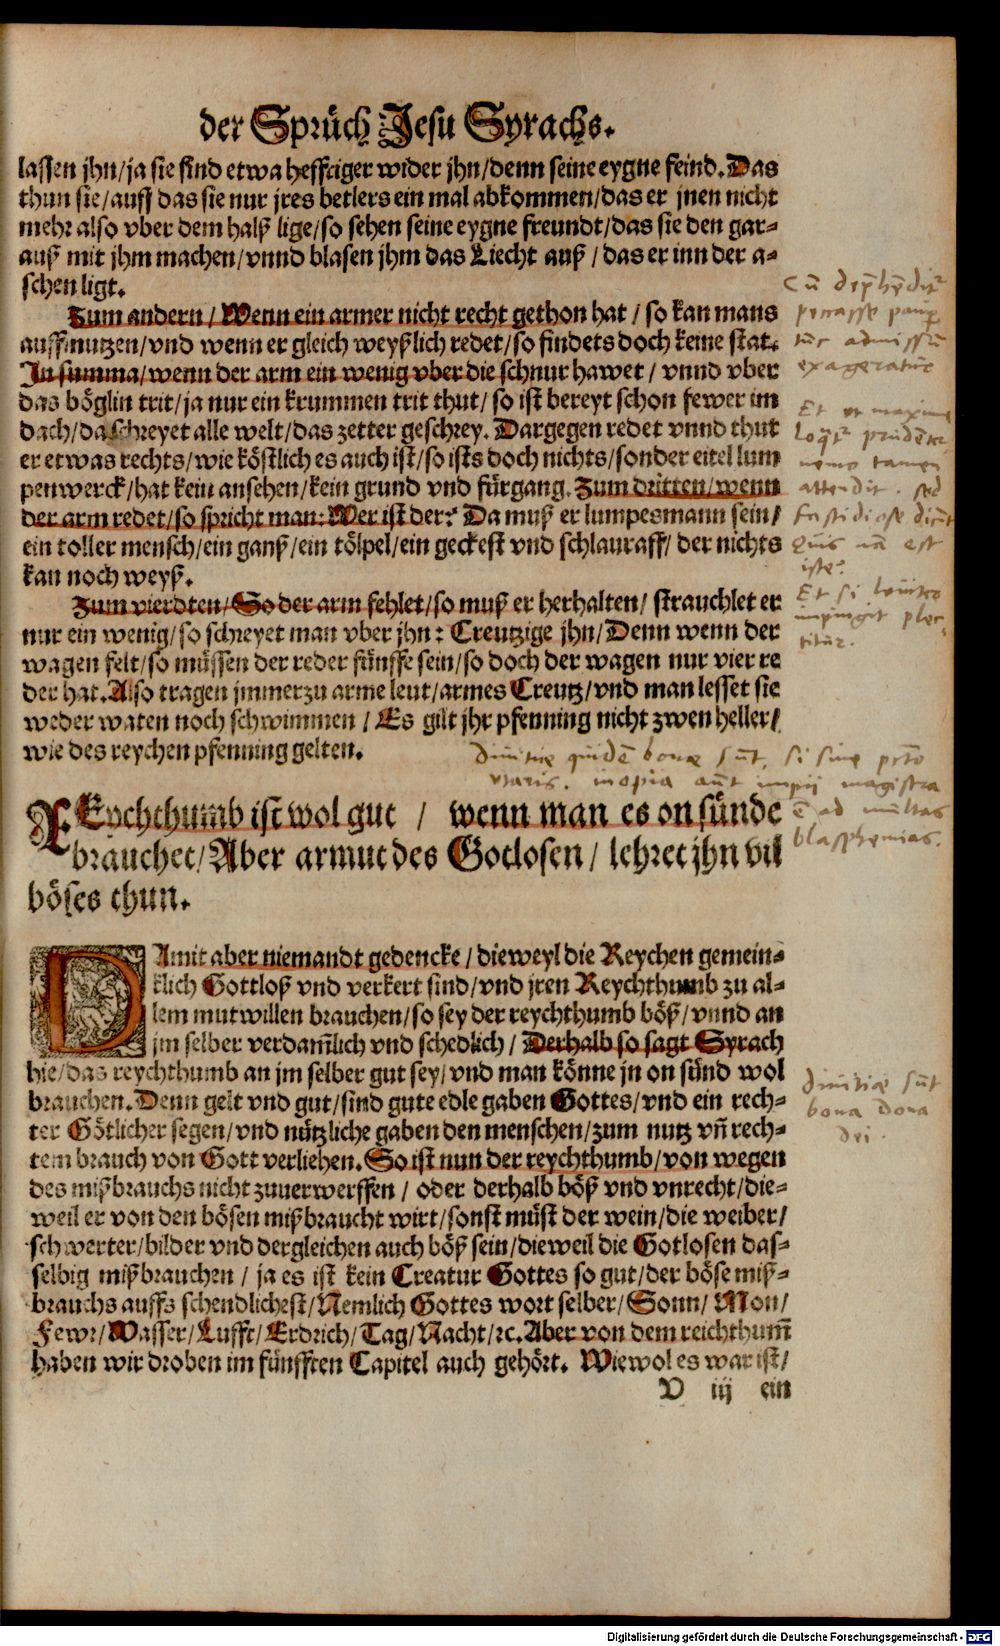 der Sprüch Jesu Syrachs.
lassen jhn/ja sie sind etwa hefftiger wider jhn/denn seine eygne feind. Das
thun sie/auff das sie nur jres betlers ein mal abkommen/das er jnen nicht
mehr also vber dem halß lige/so sehen seine eygne freundt/das sie den gar-
auß mit jhm machen/vnnd blasen jhm das Liecht auß/das er inn der a-
schen ligt.
Zum andern/Wenn ein armer nicht recht gethon hat/so kan mans
auffmutzen/vnd wenn er gleich weyßlich redet/so findets doch keine stat.
In summa/wenn der arm ein wenig vber die schnur hawet/vnnd vber
das böglin trit/ja nur ein krummen trit thut/so ist bereyt schon fewer im
dach/da schreyet alle welt/das zetter geschrey. Dargegen redet vnnd thut
er etwas rechts/wie köstlich es auch ist/so ists doch nichts/sonder eitel lum
penwerck/hat kein ansehen/kein grund vnd fürgang. Zum dritten/wenn
der arm redet/so spricht man: Wer ist der? Da muß er lumpesmann sein/
ein toller mensch/ein ganß/ein tölpel/ein geckest vnd schlauraff/der nichts
kan noch weyß.
Zum vierdten/So der arm fehlet/so muß er herhalten/strauchlet er
nur ein wenig/so schreyet man vber jhn: Creutzige jhn/Denn wenn der
wagen felt/so müssen der reder fünffe sein/so doch der wagen nur vier re
der hat. Also tragen jmmerzu arme leut/armes Creutz/vnd man lesset sie
weder waten noch schwimmen/Es gilt jhr pfenning nicht zwen heller/
wie des reychen pfenning gelten.
REychthumb ist wol gut/wenn man es on sünde
brauchet/Aber armut des Gotlosen/lehret jhn vil
böses thun.
DAmit aber niemandt gedencke/dieweyl die Reychen gemein-
klich Gottloß vnd verkert sind/vnd jren Reychthumb zu al-
lem mutwillen brauchen/so sey der reychthumb böß/vnnd an
jm selber verdam̄lich vnd schedlich/Derhalb so sagt Syrach
hie/das reychthumb an jm selber gut sey/vnd man könne jn on sünd wol
brauchen. Denn gelt vnd gut/sind gute edle gaben Gottes/vnd ein rech-
ter Götlicher segen/vnd nützliche gaben den menschen/zum nutz vn̄ rech-
tem brauch von Gott verliehen. So ist nun der reychthumb/von wegen
des mißbrauchs nicht zuuerwerffen/oder derhalb böß vnd vnrecht/die-
weil er von den bösen mißbraucht wirt/sonst müst der wein/die weiber/
schwerter/bilder vnd dergleichen auch böß sein/dieweil die Gotlosen das-
selbig mißbrauchen/ja es ist kein Creatur Gottes so gut/der böse miß-
brauchs auffs schendlichest/Nemlich Gottes wort selber/Sonn/Mon/
Fewr/Wasser/Lufft/Erdrich/Tag/Nacht/ꝛc. Aber von dem reichthum̄
haben wir droben im fünfften Capitel auch gehört. Wiewol es war ist/
V iij ein
Cū dep̄hēdit̄
peccasse paup
tūc admissū
exageratūr
Et ut maxime
loq̄t̄ prudēter
nemo tamen
attendit. sed
fastidiose dicūt
Quis nā est
iste?
Et si leviter
impingit plec-
titūr.
divitiæ quidē bonæ sūt, si sine pctō
utaris. inopia aūt impij magistra
ē ad multas
blasphemias.
divitiæ sūt
bona dona
dei.
Digitalisierung gefördert durch die Deutsche Forschungsgemeinschaft - DFG